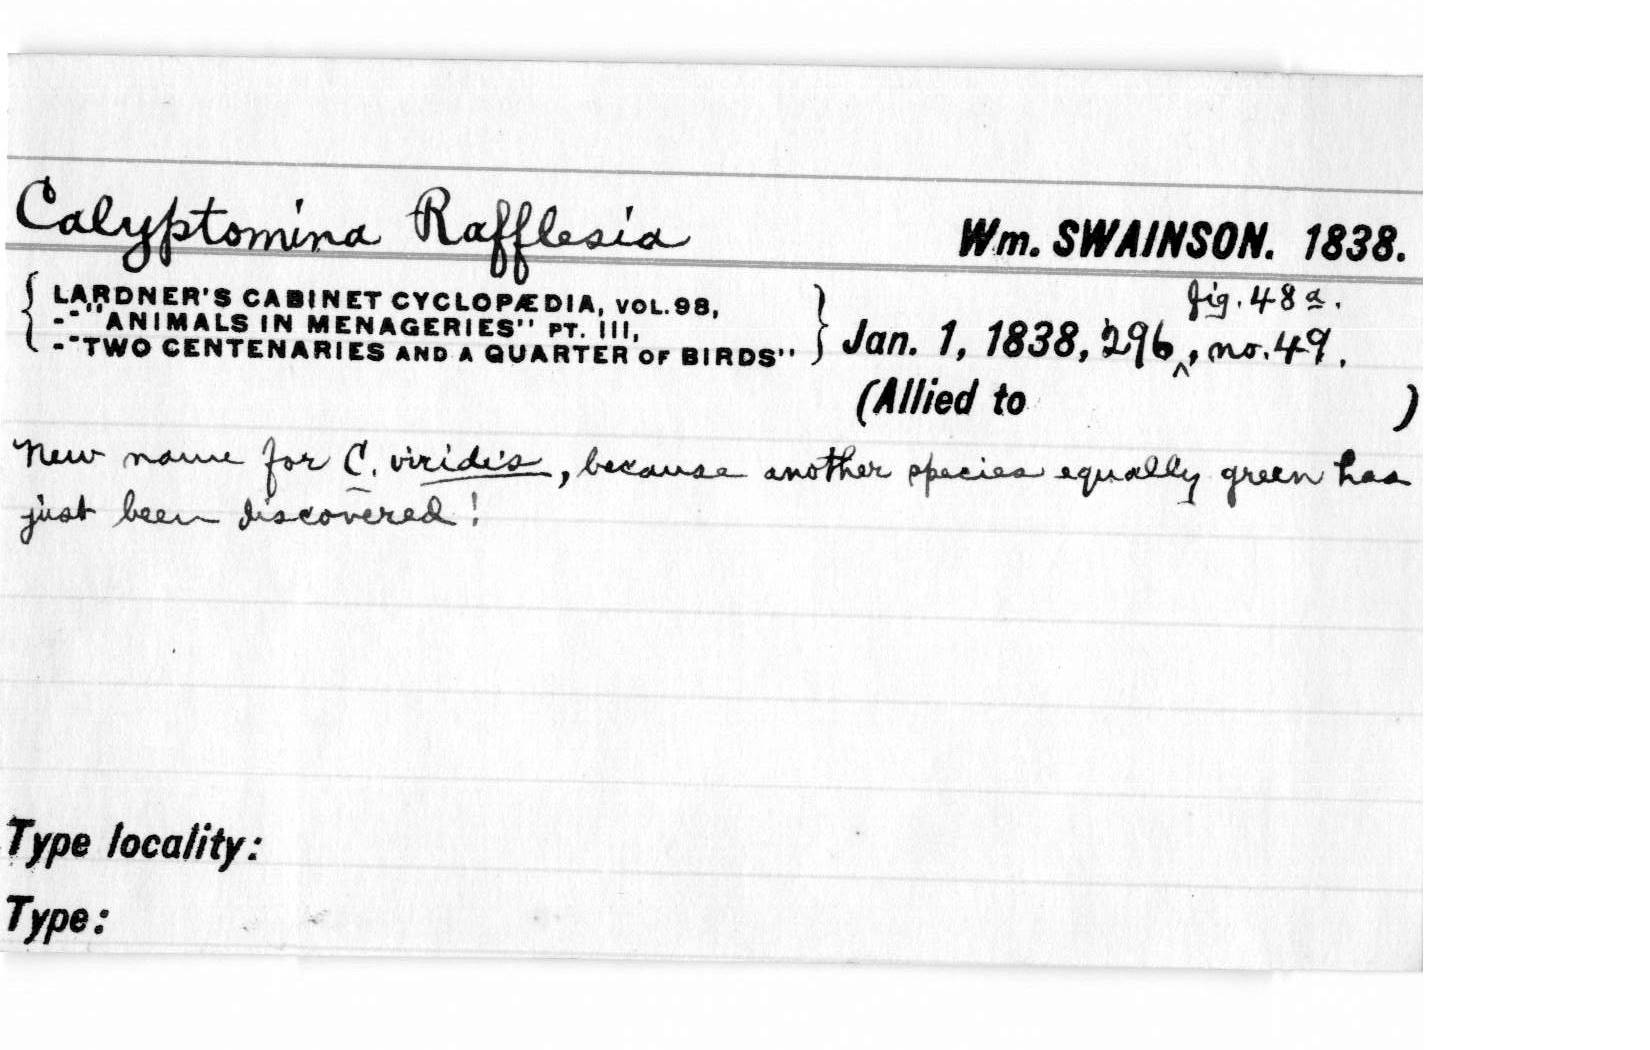 Calyptomina Rafflesia
Wm. SWAINSON. 1838.
LARDNER'S CABINET CYCLOPÆDIA, VOL. 98,
-"ANIMALS IN MENAGERIES" PT. III,
-"TWO CENTENARIES AND A QUARTER OF BIRDS"
fig. 48a.
Jan. 1, 1838, 296^, no. 49.
(Allied to )
New name for C. viridis, because another species equally green has
just been discovered!
Type locality:
Type: